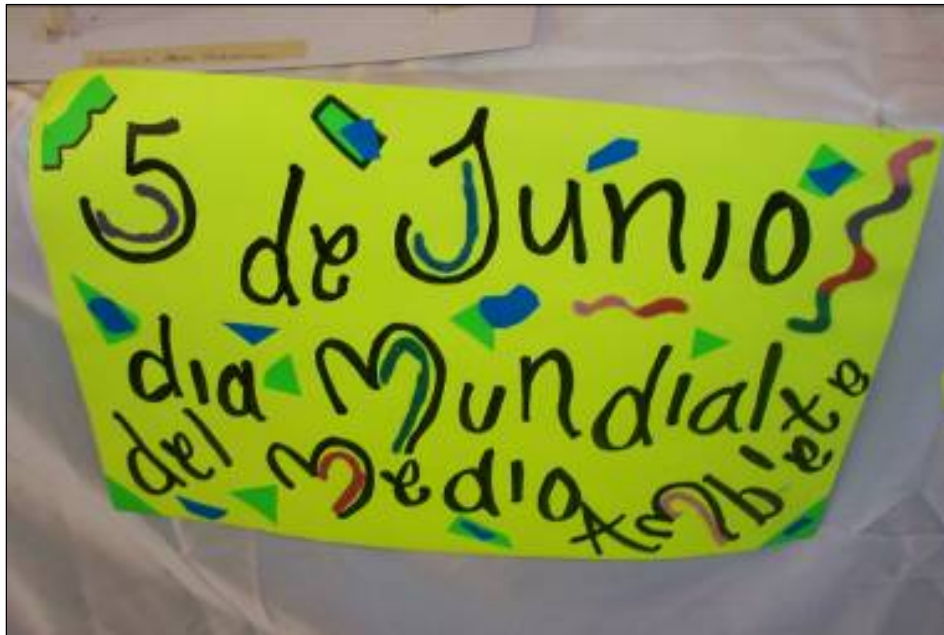 5 de Junio
dia Mundial
del Medio Ambiete